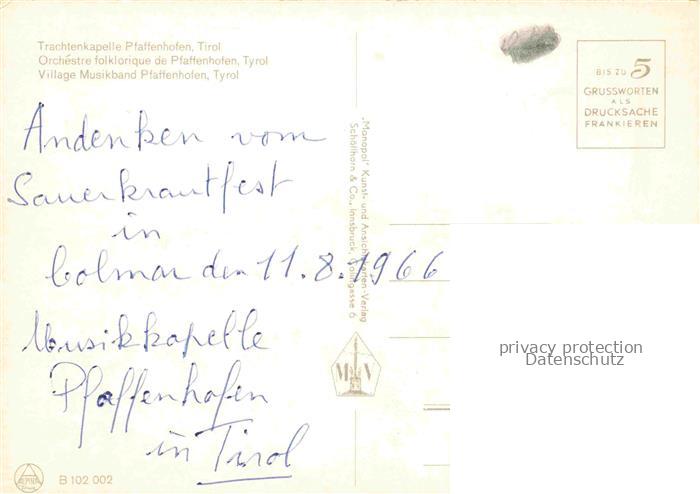 Trachtenkapelle Pfaffenhofen, Tirol
Orchéstre folklorique de Pfaffenhofen, Tyrol
Village Musikband Pfaffenhofen, Tyrol
Andenken vom
Sauerkrautfest
in
Colmar den 11.8.1966
Musikkapelle
Pfaffenhofen
in Tirol
B 102 002
„Monopol" Kunst- und Ansichtskarten-Verlag
Schöllhorn & Co., Innsbruck, 6
M V
BIS ZU 5
GRUSSWORTEN
ALS
DRUCKSACHE
FRANKIEREN
privacy protection
Datenschutz